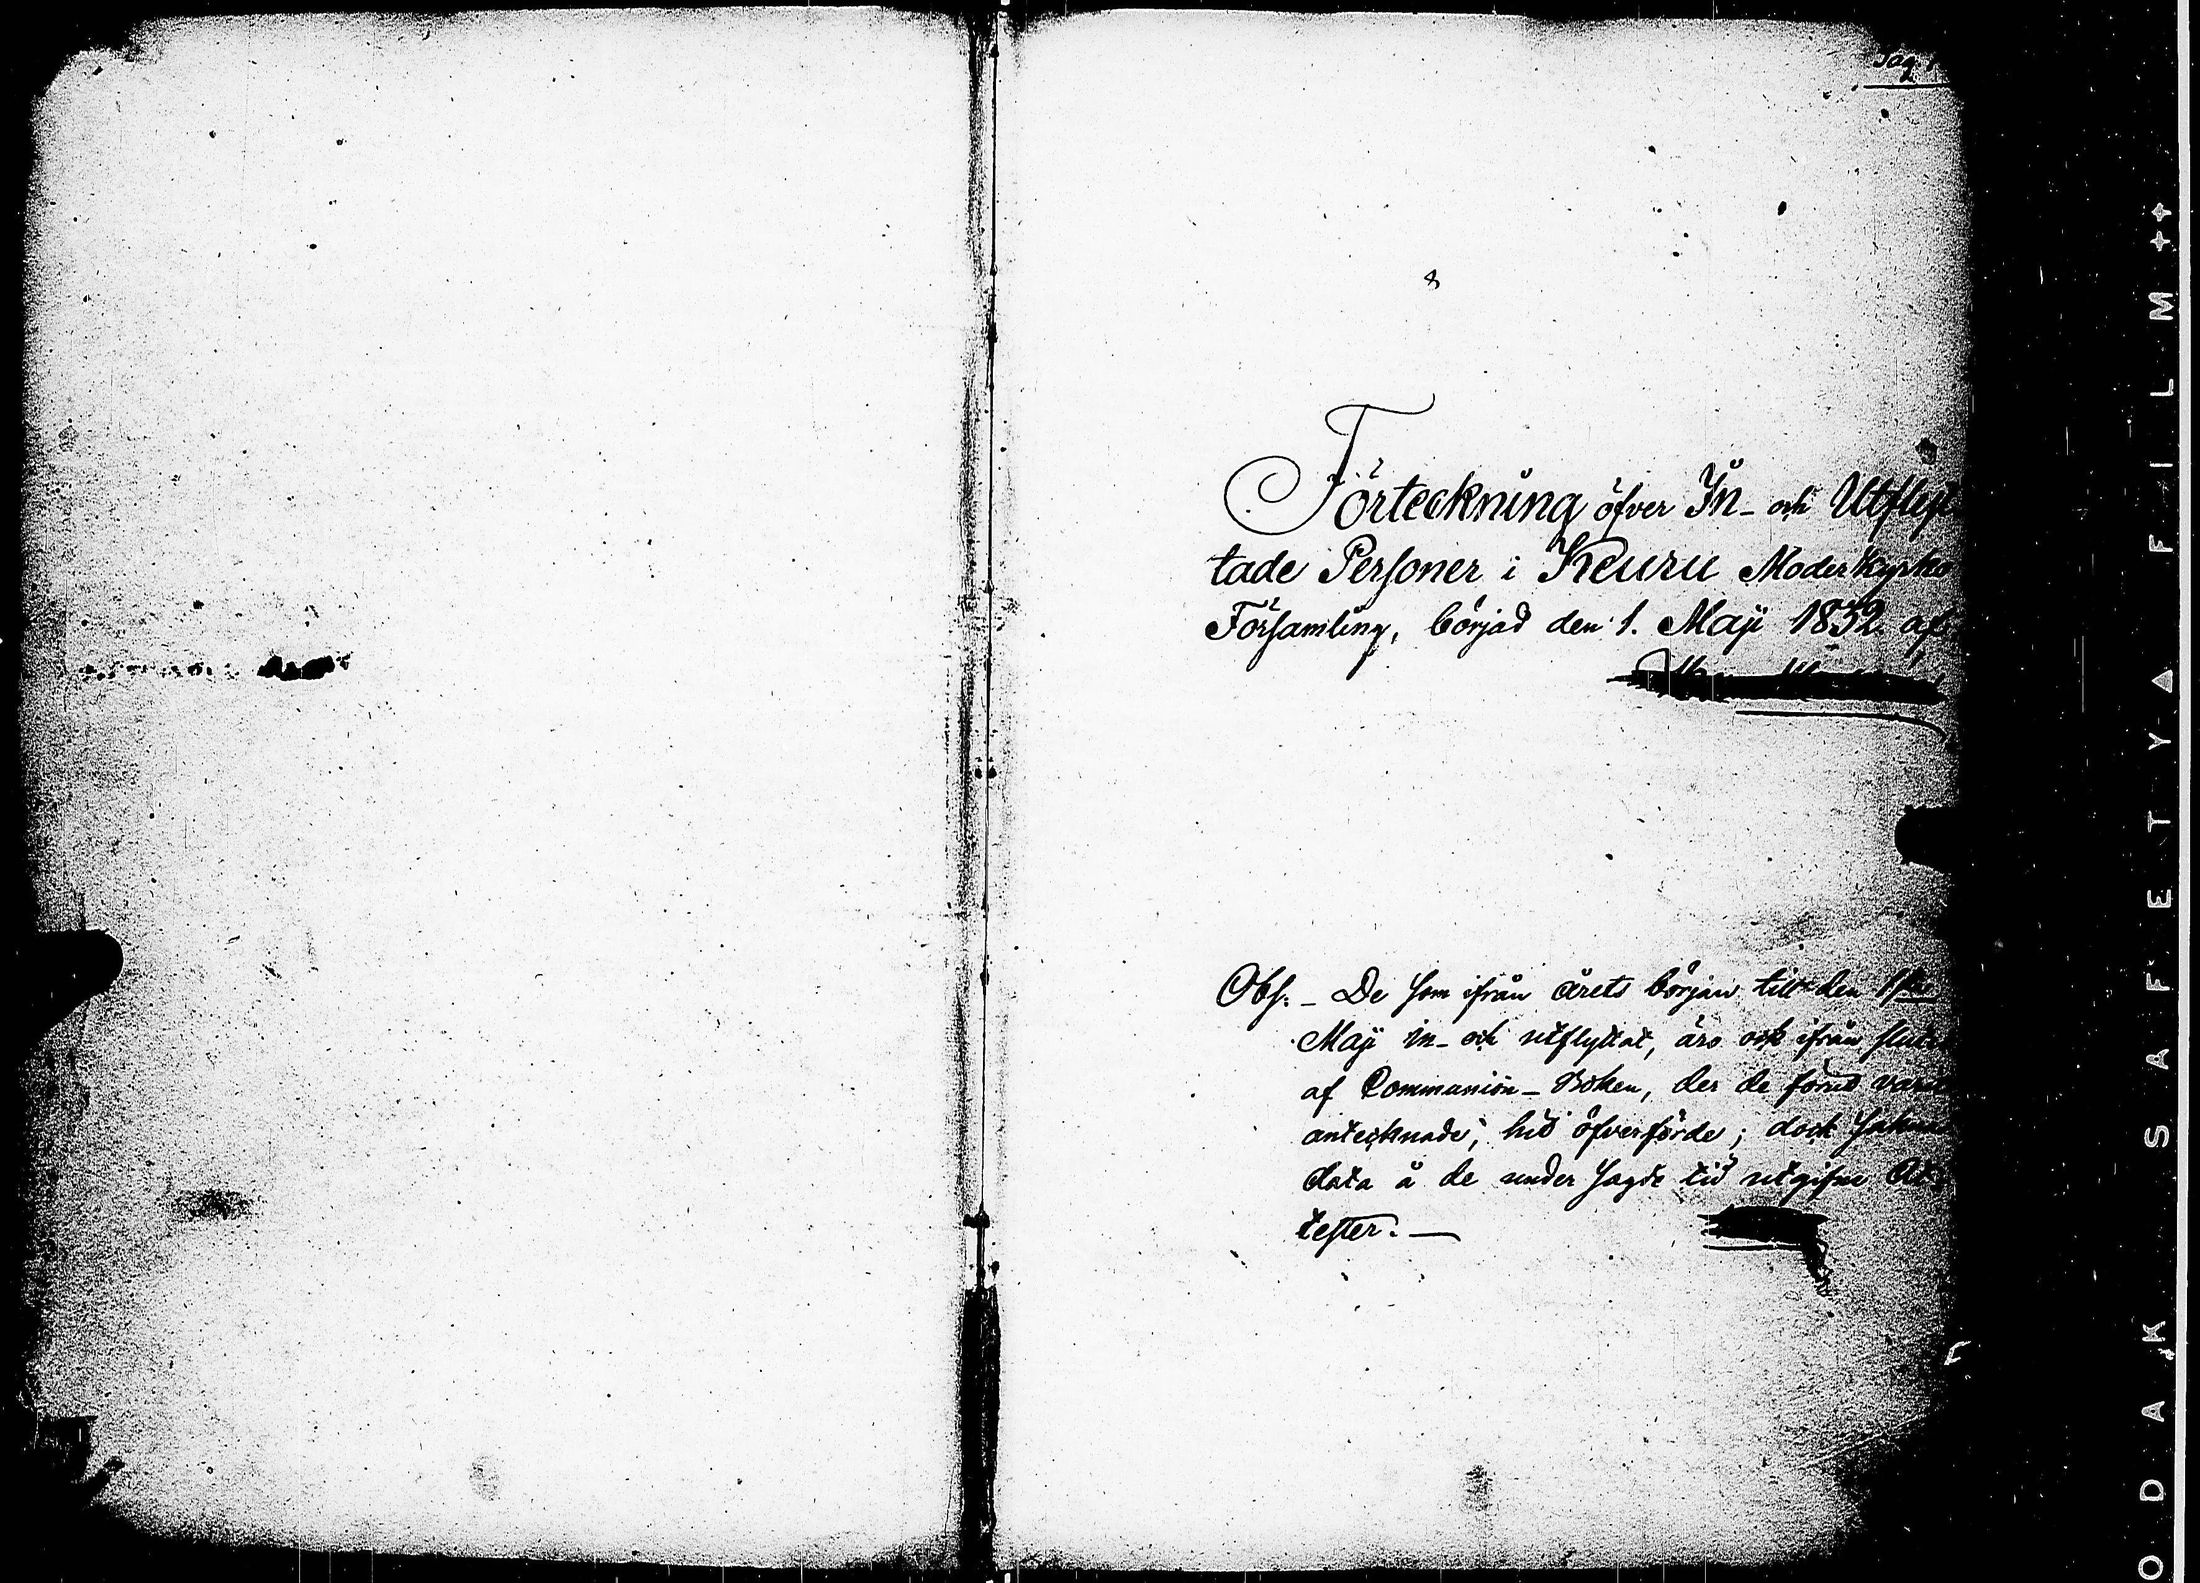 Pag. 1
8
Förteckning öfver In- och Utflyt
tade Personer i Keuru Moderkyrko
Församling, börjad den 1. Maji 1832 af
Obs. - De som ifrån årets början till den 1sta
Maji in- och utflyttat, äro ock ifrån slutet
af Communion-Boken, der de förut varit
antecknade, hit öfverförde; dock saknas
data å de under sagde tid utgifne At-
tester. —
KODAK SAFETY ▲ FILM ++